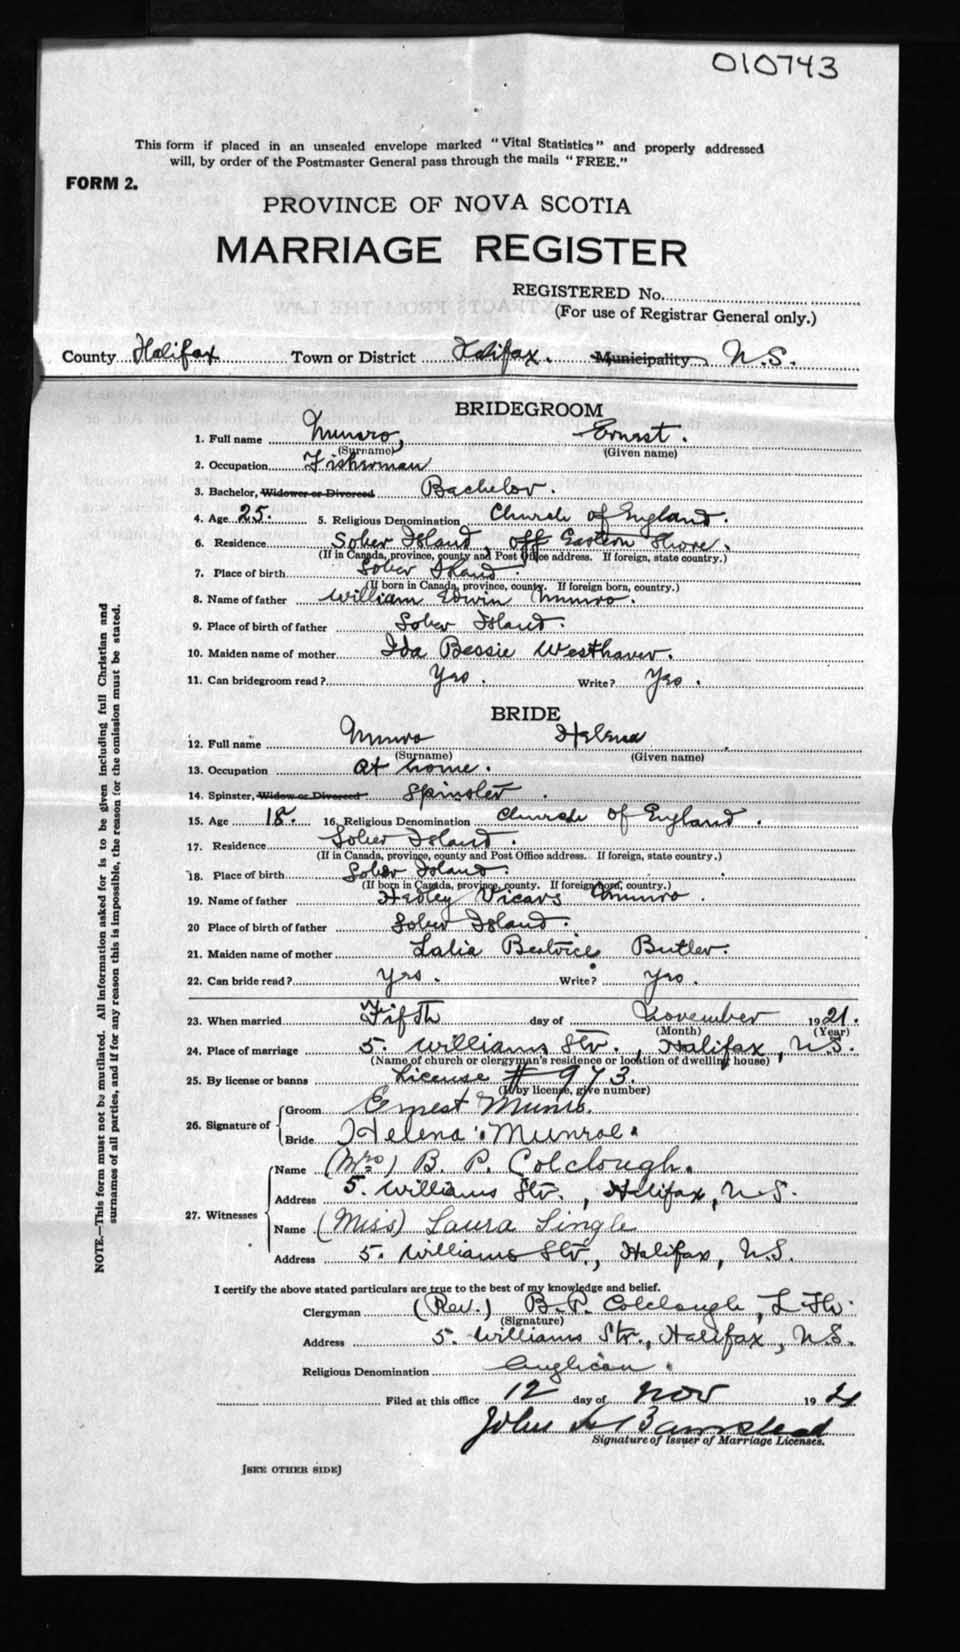 010743
This form if placed in an unsealed envelope marked "Vital Statistics" and properly addressed
will, by order of the Postmaster General pass through the mails "FREE."
FORM 2.
PROVINCE OF NOVA SCOTIA
MARRIAGE REGISTER
REGISTERED No.
(For use of Registrar General only.)
County Halifax Town or District Halifax. Municipality N.S.
BRIDEGROOM
1. Full name Munro, Ernest.
(Surname) (Given name)
2. Occupation Fisherman
3. Bachelor, Widower or Divorced Bachelor.
4. Age 25. 5. Religious Denomination Church of England.
6. Residence Sober Island, off Eastern Shore.
(If in Canada, province, county and Post Office address. If foreign, state country.)
7. Place of birth Sober Island.
(If born in Canada, province, county. If foreign born, country.)
8. Name of father William Edwin Munro.
9. Place of birth of father Sober Island.
10. Maiden name of mother Ida Bessie Westhaver.
11. Can bridegroom read? Yes. Write? Yes.
BRIDE
12. Full name Munro Helena
(Surname) (Given name)
13. Occupation at home.
14. Spinster, Widow or Divorced Spinster.
15. Age 18. 16. Religious Denomination Church of England.
17. Residence Sober Island.
(If in Canada, province, county and Post Office address. If foreign, state country.)
18. Place of birth Sober Island.
(If born in Canada, province, county. If foreign born, country.)
19. Name of father Hedley Vicars Munro.
20 Place of birth of father Sober Island.
21. Maiden name of mother Lalia Beatrice Butler.
22. Can bride read? Yes. Write? Yes.
23. When married Fifth day of November 1921.
(Month) (Year)
24. Place of marriage 5. Williams Str., Halifax, N.S.
(Name of church or clergyman's residence or location of dwelling house)
25. By license or banns License # 973.
(If by license, give number)
26. Signature of Groom Ernest Munro.
Bride Helena Munroe.
27. Witnesses
Name (Mrs) B. P. Colclough.
Address 5. Williams Str., Halifax, N.S.
Name (Miss) Laura Lingle
Address 5. Williams Str., Halifax, N.S.
I certify the above stated particulars are true to the best of my knowledge and belief.
Clergyman (Rev.) B. P. Colclough, L.Th.
(Signature)
Address 5. Williams Str., Halifax, N.S.
Religious Denomination Anglican.
Filed at this office 12 day of Nov 1921
John Barnstead
Signature of Issuer of Marriage Licenses.
[SEE OTHER SIDE]
NOTE.—This form must not be mutilated. All information asked for is to be given including full Christian and
surnames of all parties, and if for any reason this is impossible, the reason for the omission must be stated.